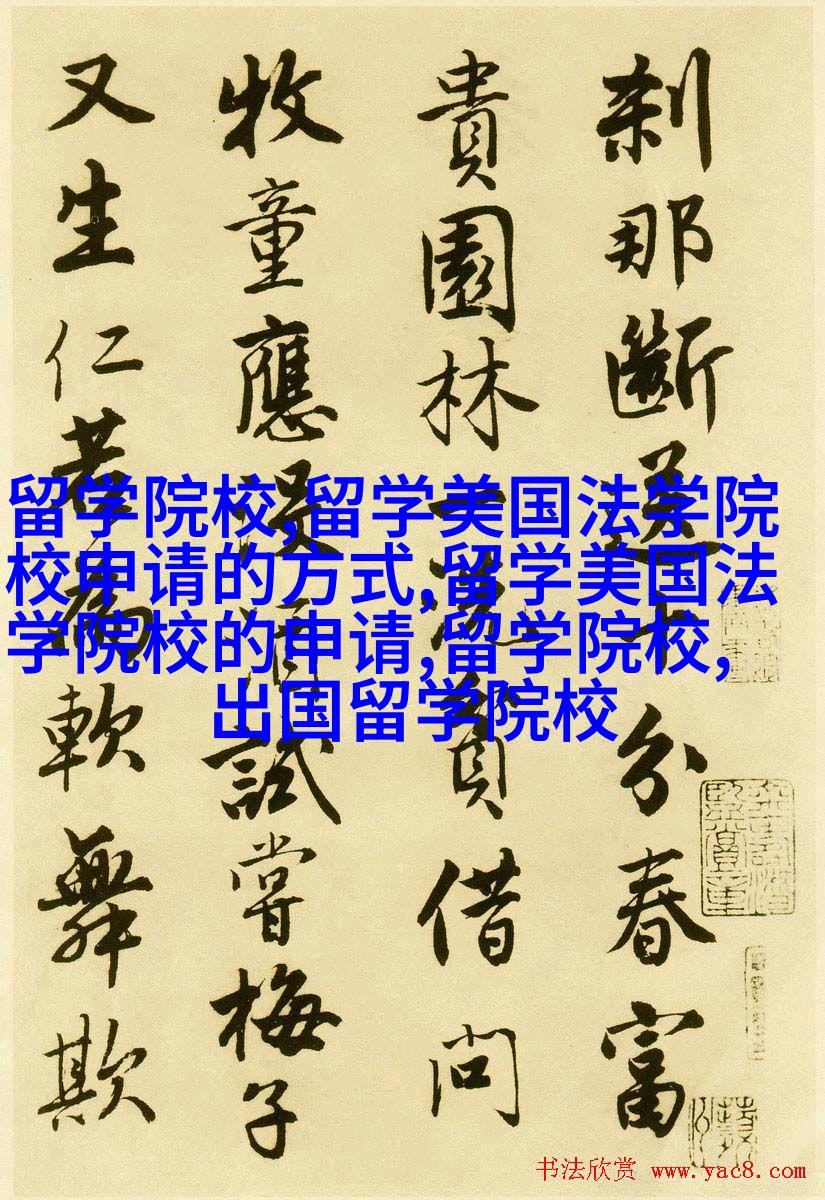 刹那斷送十分春富
貴園林一洗貧借問
牧童應没酒試嘗梅子
又生仁若爲軟舞欺
留学院校,留学美国法学院
校申请的方式,留学美国法
学院校的申请,留学院校,
出国留学院校
书法欣赏 www.yac8.com